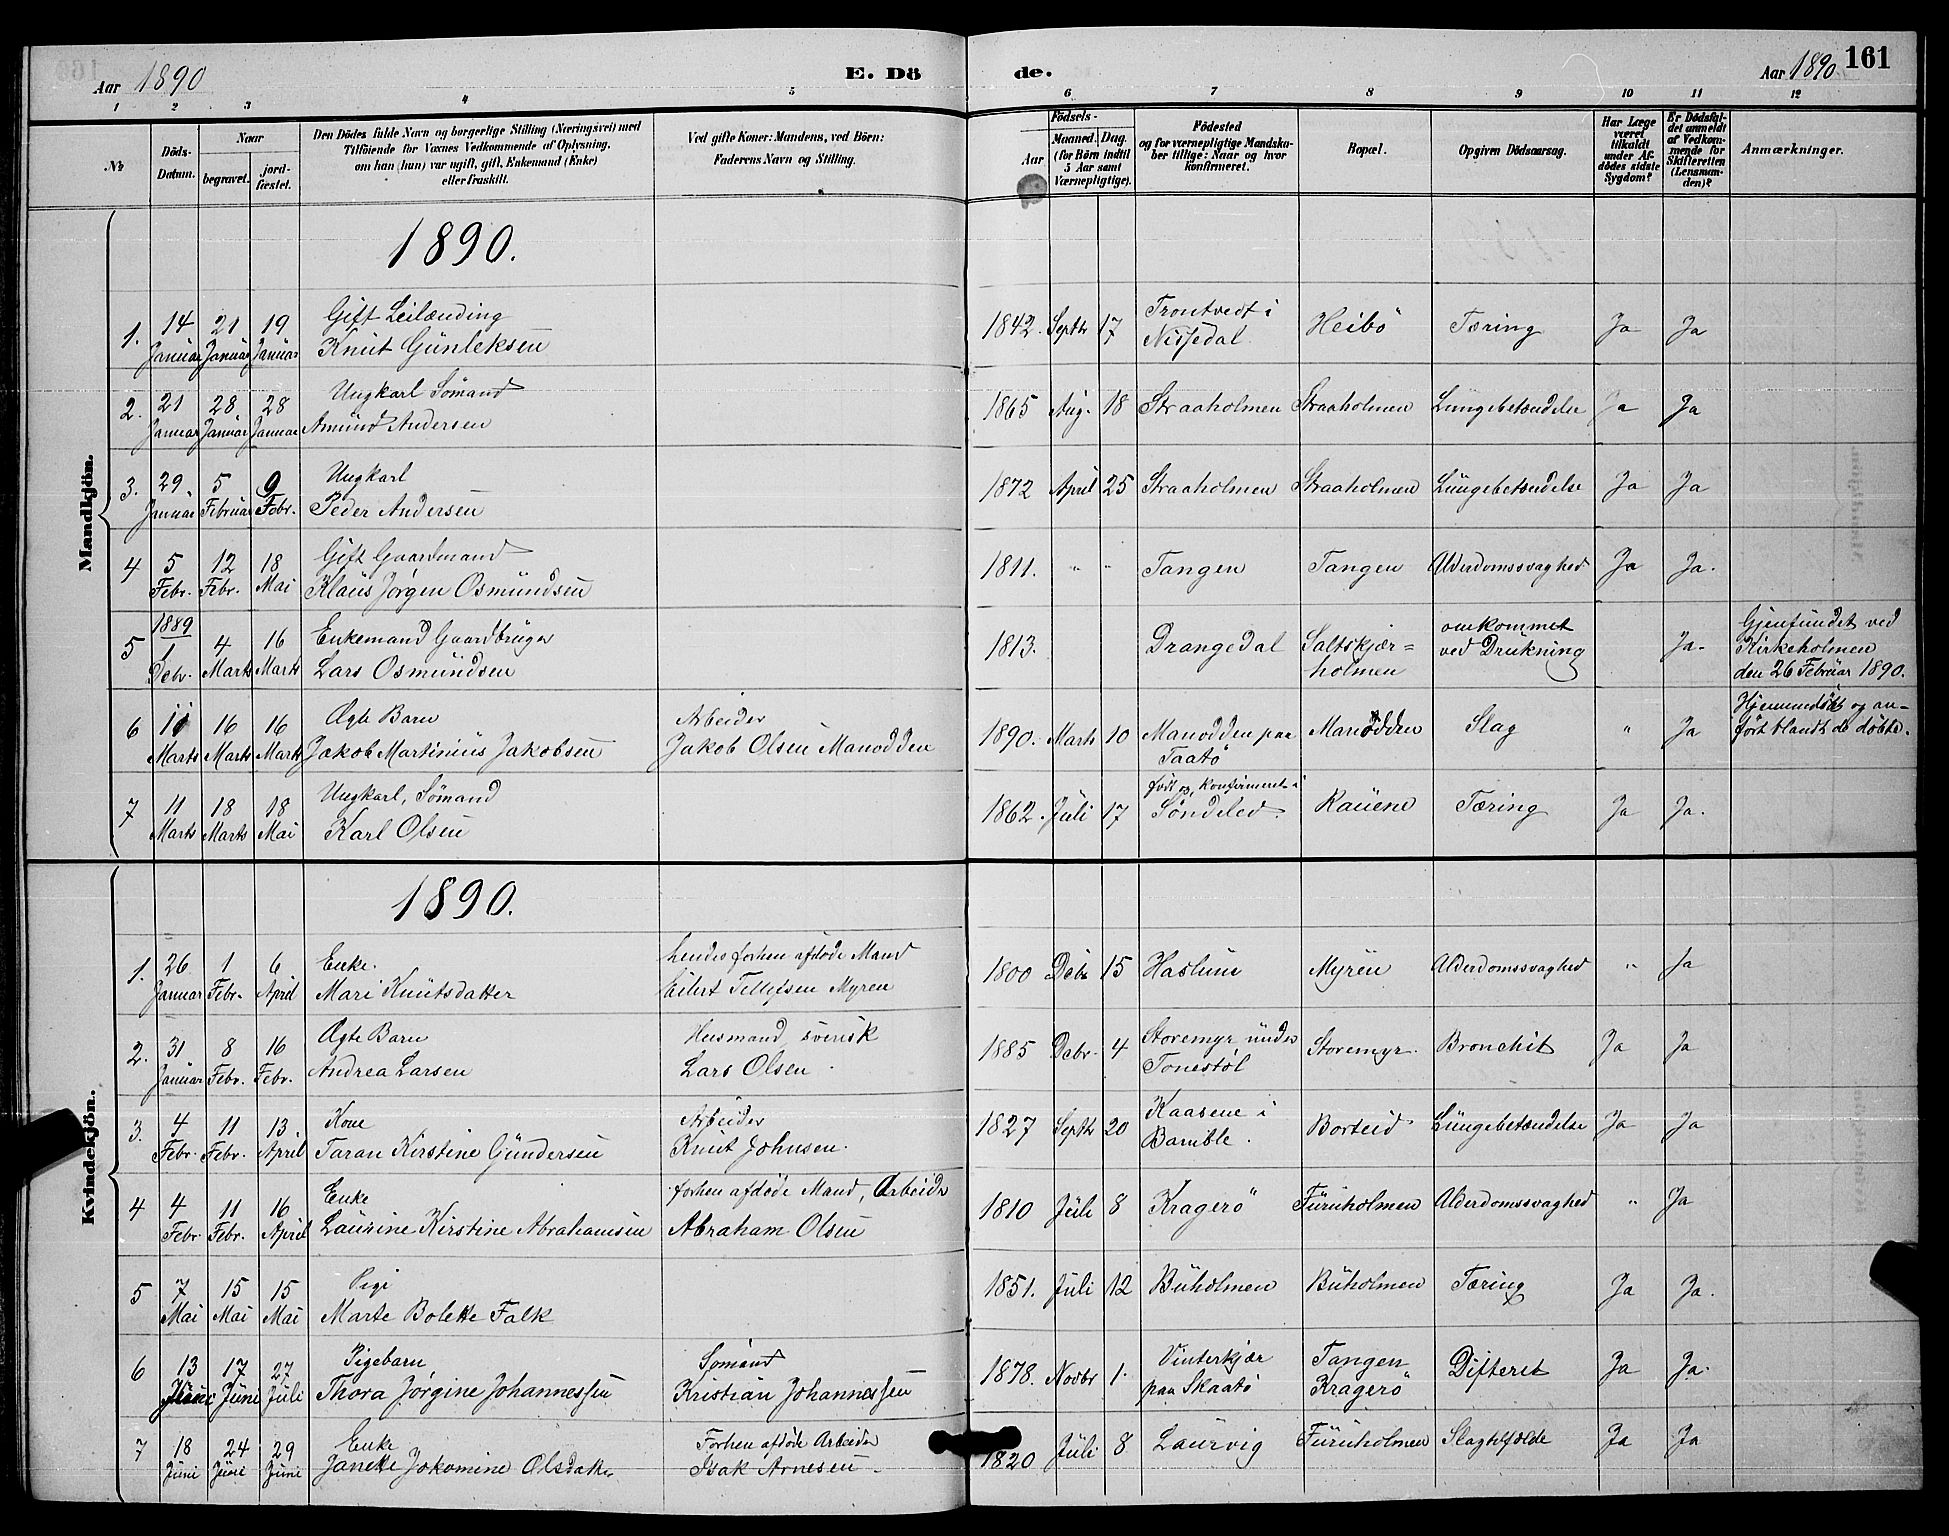 Aar 1890
E. Dö
de.
Aar 1890.
161
1 2 3 4 5 6 7 8 9 10 11 12
№
Döds-Datum.
Naar
begravet.
jord-fæstet.
Den Dödes fulde Navn og borgerlige Stilling (Næringsvei) med
Tilföiende for Voxnes Vedkommende af Oplysning,
om han (hun) var ugift, gift, Enkemand (Enke)
eller fraskilt.
Ved gifte Koner: Mandens, ved Börn:
Faderens Navn og Stilling.
Födsels-
Aar
Maaned. Dag.
(for Börn indtil
5 Aar samt
Værnepligtige).
Födested
og for værnepligtige Mandska-
ber tillige: Naar og hvor
konfirmeret.
Bopæl.
Opgiven Dödsaarsag.
Har Læge
været
tilkaldt
under Af-
dödes sidste
Sygdom?
Er Dödsfal-
det anmeldt
af Vedkom-
mende for
Skifteretten
(Lensman-
den)?
Anmærkninger.
Mandkjön.
1890.
1. 14 Januar 21 Januar 19 Januar Gift Leilænding
Knut Gunleksen 1842. Septbr 17 Trontvedt i Nissedal Heibö Tæring Ja Ja
2. 21 Januar 28 Januar 28 Januar Ungkarl Sömand
Amund Andersen 1865 Aug. 18 Straaholmen Straaholmen Lungebetændelse Ja Ja
3. 29. Januar 5 Februar 9 Febr. Ungkarl
Peder Andersen 1872 April 25 Straaholmen Straaholmen Lungebetændelse Ja Ja
4 5 Febr. 12 Febr. 18 Mai Gift Gaardmand
Klaus Jörgen Osmundsen 1811. " " Tangen Tangen Alderdomssvaghed Ja Ja.
5 1889 1 Debr. 4 Marts 16 Marts Enkemand Gaardbruger
Lars Osmundsen 1813. Drangedal Saltskjær=
holmen omkommet
ved Drukning Ja. Gjenfundet ved
Kirkeholmen
den 26 Februar 1890.
6 11 Marts 16 Marts 16 Marts Ægte Barn
Jakob Martinius Jakobsen Arbeider
Jakob Olsen Manodden 1890. Marts 10 Manodden paa
Taatö Manodden Slag " Ja Hjemmedöbt og an-
fört blandt de döbte.
7 11 Marts 18 Marts 18 Mai Ungkarl, Sömand
Karl Olsen 1862. Juli 17 födt og konfirmeret i
Söndeled. Rauene Tæring Ja Ja.
Kvindekjön.
1890.
1. 26 Januar 1 Febr. 6 April Enke.
Mari Knutsdatter hendes forhen afdöde Mand
Eilert Tellefsen Myren 1800 Debr 15 Haslum Myren Alderdomssvaghed " Ja
2. 31 Januar 8 Febr. 16 Febr. Ægte Barn
Andrea Larsen Husmand, svensk
Lars Olsen. 1885 Debr. 4 Storemyr under
Tonestöl Storemyr. Bronchit Ja Ja
3. 4 Febr. 11 Febr. 13. April Kone
Taran Kirstine Gundersen Arbeider
Knut Johnsen. 1827 Septbr 20 Kaasene i
Bamble. Borteid Lungebetændelse Ja Ja
4 4 Febr 11 Febr. 16 April Enke
Laurine Kirstine Abrahamsen forhen afdöde Mand, Arbeider
Abraham Olsen 1810 Juli 8 Kragerö Furuholmen Alderdomssvaghed " Ja
5 7 Mai 15 Mai 15 Mai Pige
Marte Bolette Falk 1851. Juli 12 Buholmen Buholmen Tæring Ja Ja.
6 13 Juni 17 Juni 27 Juli Pigebarn
Thora Jörgine Johannessen Sömand
Kristian Johannessen 1878. Novbr 1. Vinterkjær
paa Skaatö Tangen
Kragerö Difterit Ja Ja.
7 18 Juni 24 Juni 29 Juni Enke
Janette Jokomine Olsdatter Forhen afdöde Arbeider
Isak Arnesen 1820 Juli 8 Laurvig Furuholmen Slagtilfælde Ja Ja